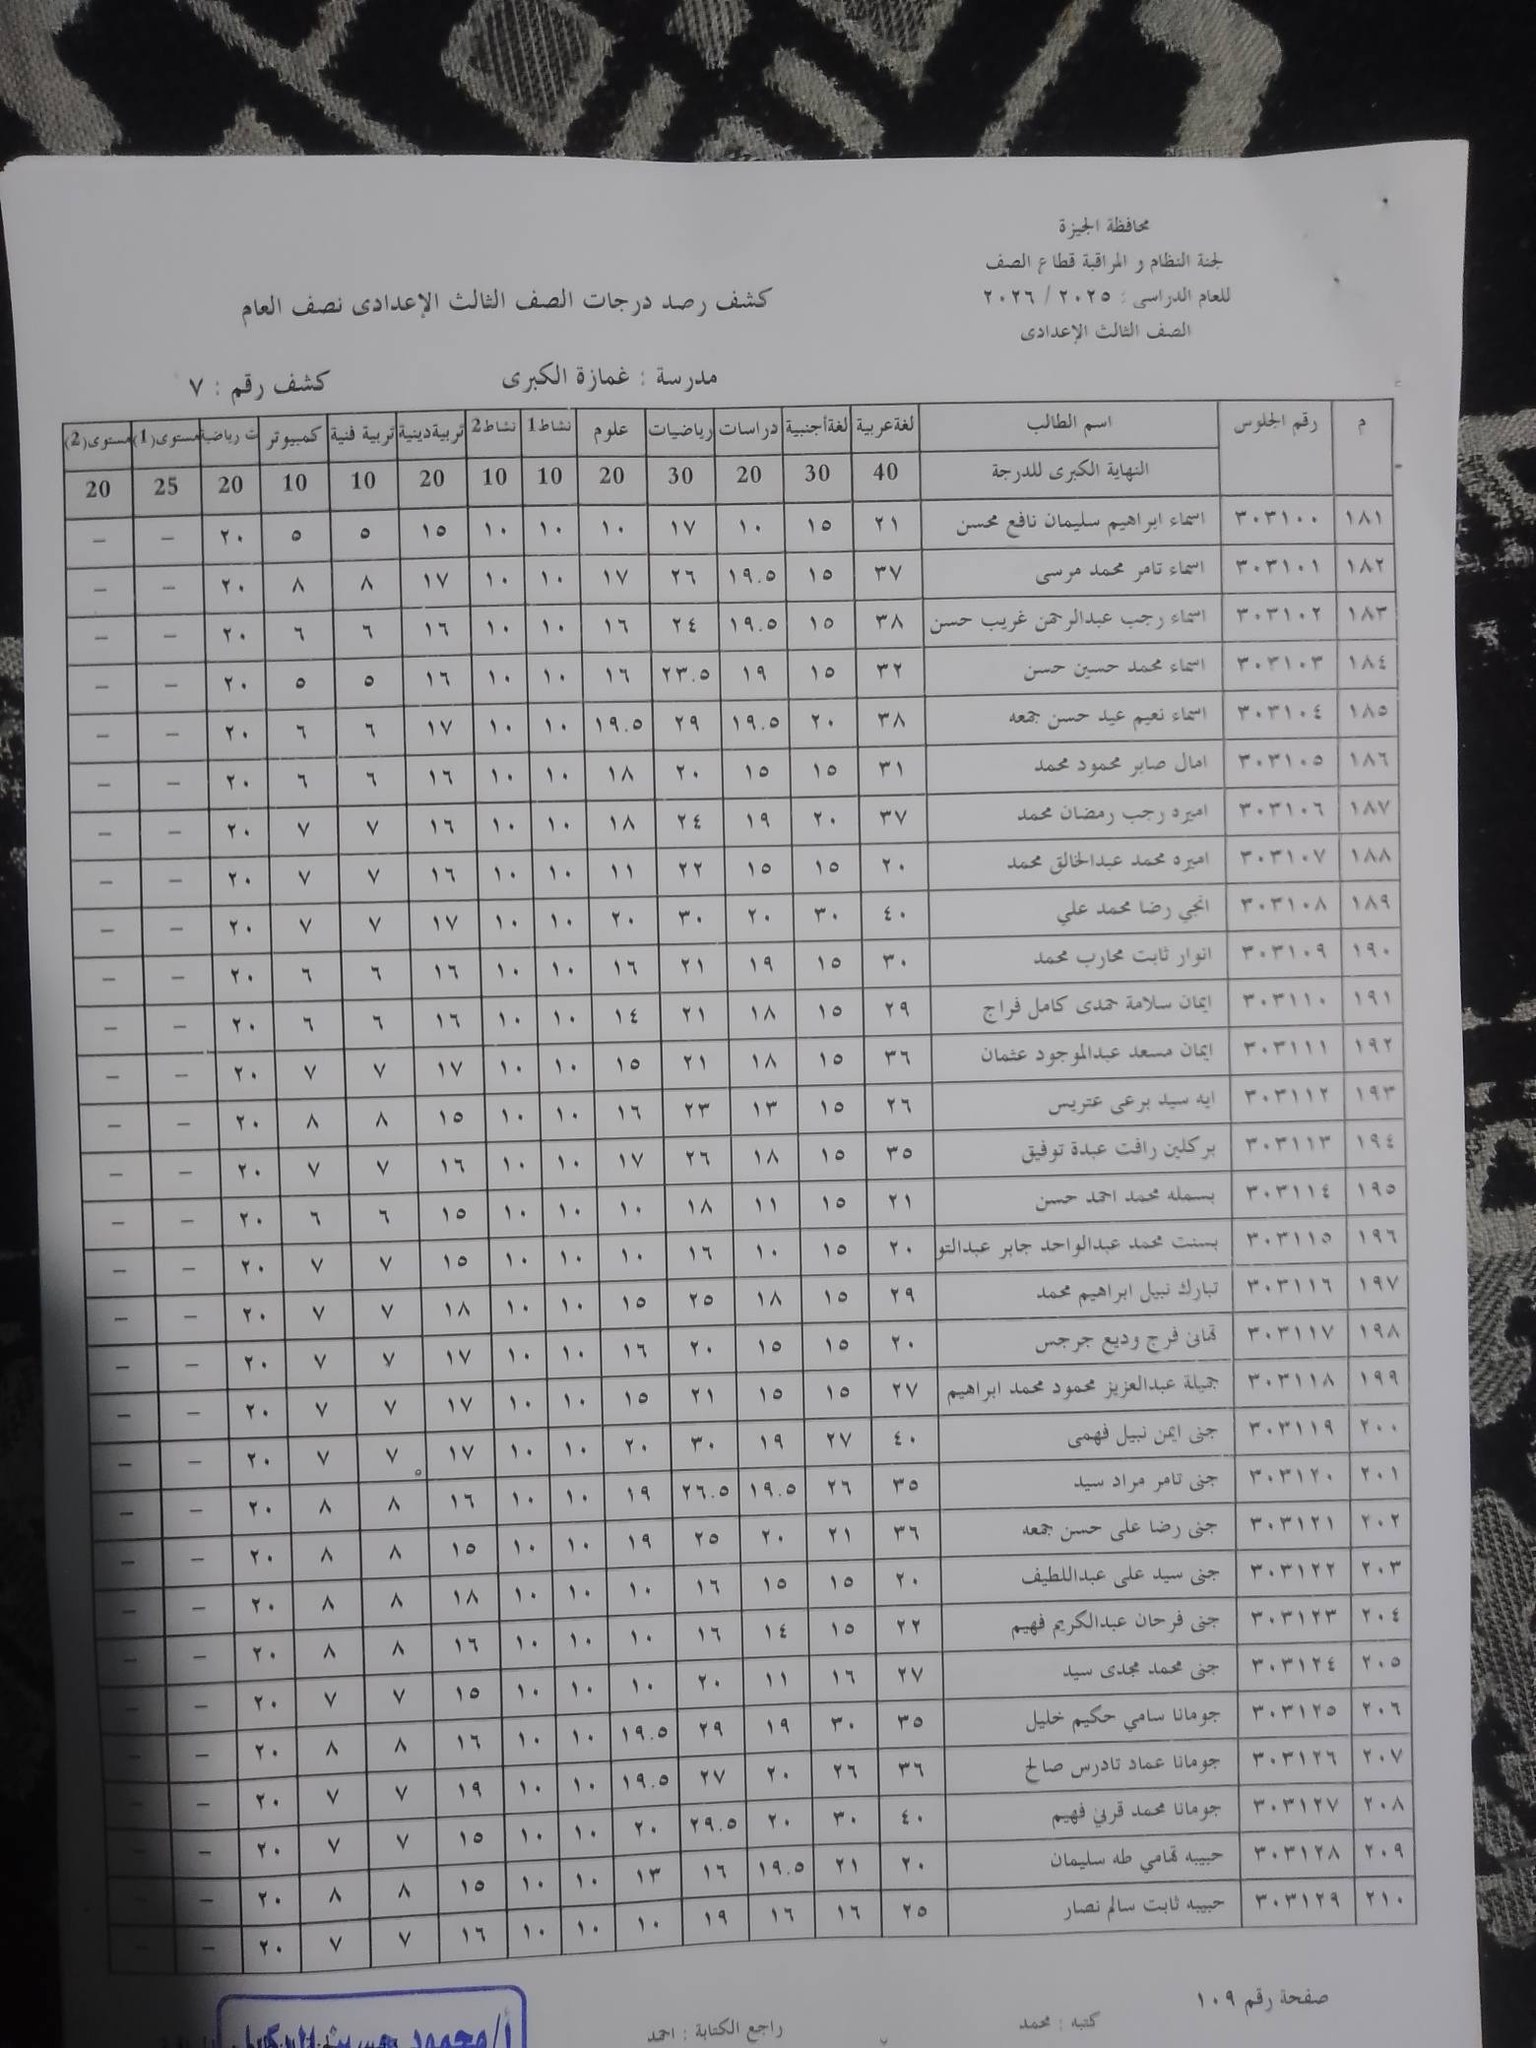 محافظة الجيزة
لجنة النظام و المراقبة قطاع الصف
للعام الدراسى : ٢٠٢٥ / ٢٠٢٦
الصف الثالث الإعدادى
كشف رصد درجات الصف الثالث الإعدادى نصف العام
مدرسة : غمازة الكبرى كشف رقم : ٧
م رقم الجلوس اسم الطالب لغة عربية لغة أجنبية دراسات رياضيات علوم نشاط 1 نشاط 2 تربية دينية تربية فنية كمبيوتر ت رياضية مستوى(1) مستوى(2)
النهاية الكبرى للدرجة 40 30 20 30 20 10 10 20 10 10 20 25 20
١٨١ ٣٠٣١٠٠ اسماء ابراهيم سليمان نافع محسن ٢١ ١٥ ١٠ ١٧ ١٠ ١٠ ١٠ ١٥ ٥ ٥ ٢٠ – –
١٨٢ ٣٠٣١٠١ اسماء تامر محمد مرسى ٣٧ ١٥ ١٩.٥ ٢٦ ١٧ ١٠ ١٠ ١٧ ٨ ٨ ٢٠ – –
١٨٣ ٣٠٣١٠٢ اسماء رجب عبدالرحمن غريب حسن ٣٨ ١٥ ١٩.٥ ٢٤ ١٦ ١٠ ١٠ ١٦ ٦ ٦ ٢٠ – –
١٨٤ ٣٠٣١٠٣ اسماء محمد حسين حسن ٣٢ ١٥ ١٩ ٢٣.٥ ١٦ ١٠ ١٠ ١٦ ٥ ٥ ٢٠ – –
١٨٥ ٣٠٣١٠٤ اسماء نعيم عيد حسن جمعه ٣٨ ٢٠ ١٩.٥ ٢٩ ١٩.٥ ١٠ ١٠ ١٧ ٦ ٦ ٢٠ – –
١٨٦ ٣٠٣١٠٥ امال صابر محمود محمد ٣١ ١٥ ١٥ ٢٠ ١٨ ١٠ ١٠ ١٦ ٦ ٦ ٢٠ – –
١٨٧ ٣٠٣١٠٦ اميره رجب رمضان محمد ٣٧ ٢٠ ١٩ ٢٤ ١٨ ١٠ ١٠ ١٦ ٧ ٧ ٢٠ – –
١٨٨ ٣٠٣١٠٧ اميره محمد عبدالخالق محمد ٢٠ ١٥ ١٥ ٢٢ ١١ ١٠ ١٠ ١٦ ٧ ٧ ٢٠ – –
١٨٩ ٣٠٣١٠٨ انجي رضا محمد علي ٤٠ ٣٠ ٢٠ ٣٠ ٢٠ ١٠ ١٠ ١٧ ٧ ٧ ٢٠ – –
١٩٠ ٣٠٣١٠٩ انوار ثابت محارب محمد ٣٠ ١٥ ١٩ ٢١ ١٦ ١٠ ١٠ ١٦ ٦ ٦ ٢٠ – –
١٩١ ٣٠٣١١٠ ايمان سلامة حمدى كامل فراج ٢٩ ١٥ ١٨ ٢١ ١٤ ١٠ ١٠ ١٦ ٦ ٦ ٢٠ – –
١٩٢ ٣٠٣١١١ ايمان مسعد عبدالموجود عثمان ٣٦ ١٥ ١٨ ٢١ ١٥ ١٠ ١٠ ١٧ ٧ ٧ ٢٠ – –
١٩٣ ٣٠٣١١٢ ايه سيد برعى عتريس ٢٦ ١٥ ١٣ ٢٣ ١٦ ١٠ ١٠ ١٥ ٨ ٨ ٢٠ – –
١٩٤ ٣٠٣١١٣ بركلين رافت عبدة توفيق ٣٥ ١٥ ١٨ ٢٦ ١٧ ١٠ ١٠ ١٦ ٧ ٧ ٢٠ – –
١٩٥ ٣٠٣١١٤ بسمله محمد احمد حسن ٢١ ١٥ ١١ ١٨ ١٠ ١٠ ١٠ ١٥ ٦ ٦ ٢٠ – –
١٩٦ ٣٠٣١١٥ بسنت محمد عبدالواحد جابر عبدالتو ٢٠ ١٥ ١٠ ١٦ ١٠ ١٠ ١٠ ١٥ ٧ ٧ ٢٠ – –
١٩٧ ٣٠٣١١٦ تبارك نبيل ابراهيم محمد ٢٩ ١٥ ١٨ ٢٥ ١٥ ١٠ ١٠ ١٨ ٧ ٧ ٢٠ – –
١٩٨ ٣٠٣١١٧ تهانى فرج وديع جرجس ٢٠ ١٥ ١٥ ٢٠ ١٦ ١٠ ١٠ ١٧ ٧ ٧ ٢٠ – –
١٩٩ ٣٠٣١١٨ جميلة عبدالعزيز محمود محمد ابراهيم ٢٧ ١٥ ١٥ ٢١ ١٥ ١٠ ١٠ ١٧ ٧ ٧ ٢٠ – –
٢٠٠ ٣٠٣١١٩ جنى ايمن نبيل فهمى ٤٠ ٢٧ ١٩ ٣٠ ٢٠ ١٠ ١٠ ١٧ ٧ ٧ ٢٠ – –
٢٠١ ٣٠٣١٢٠ جنى تامر مراد سيد ٣٥ ٢٦ ١٩.٥ ٢٦.٥ ١٩ ١٠ ١٠ ١٦ ٨ ٨ ٢٠ – –
٢٠٢ ٣٠٣١٢١ جنى رضا على حسن جمعه ٣٦ ٢١ ٢٠ ٢٥ ١٩ ١٠ ١٠ ١٥ ٨ ٨ ٢٠ – –
٢٠٣ ٣٠٣١٢٢ جنى سيد على عبداللطيف ٢٠ ١٥ ١٥ ١٦ ١٠ ١٠ ١٠ ١٨ ٨ ٨ ٢٠ – –
٢٠٤ ٣٠٣١٢٣ جنى فرحان عبدالكريم فهيم ٢٢ ١٥ ١٤ ١٦ ١٠ ١٠ ١٠ ١٦ ٨ ٨ ٢٠ – –
٢٠٥ ٣٠٣١٢٤ جنى محمد مجدى سيد ٢٧ ١٦ ١١ ٢٠ ١٠ ١٠ ١٠ ١٥ ٧ ٧ ٢٠ – –
٢٠٦ ٣٠٣١٢٥ جومانا سامي حكيم خليل ٣٥ ٣٠ ١٩ ٢٩ ١٩.٥ ١٠ ١٠ ١٦ ٨ ٨ ٢٠ – –
٢٠٧ ٣٠٣١٢٦ جومانا عماد تادرس صالح ٣٦ ٢٦ ٢٠ ٢٧ ١٩.٥ ١٠ ١٠ ١٩ ٧ ٧ ٢٠ – –
٢٠٨ ٣٠٣١٢٧ جومانا محمد قرني فهيم ٤٠ ٣٠ ٢٠ ٢٩.٥ ٢٠ ١٠ ١٠ ١٥ ٧ ٧ ٢٠ – –
٢٠٩ ٣٠٣١٢٨ حبيبه تهامي طه سليمان ٢٠ ٢١ ١٩.٥ ١٦ ١٣ ١٠ ١٠ ١٥ ٨ ٨ ٢٠ – –
٢١٠ ٣٠٣١٢٩ حبيبه ثابت سالم نصار ٢٥ ١٦ ١٦ ١٩ ١٠ ١٠ ١٠ ١٦ ٧ ٧ ٢٠ – –
صفحة رقم ١٠٩
كتبه : محمد راجع الكتابة : احمد
أ/محمود حسين